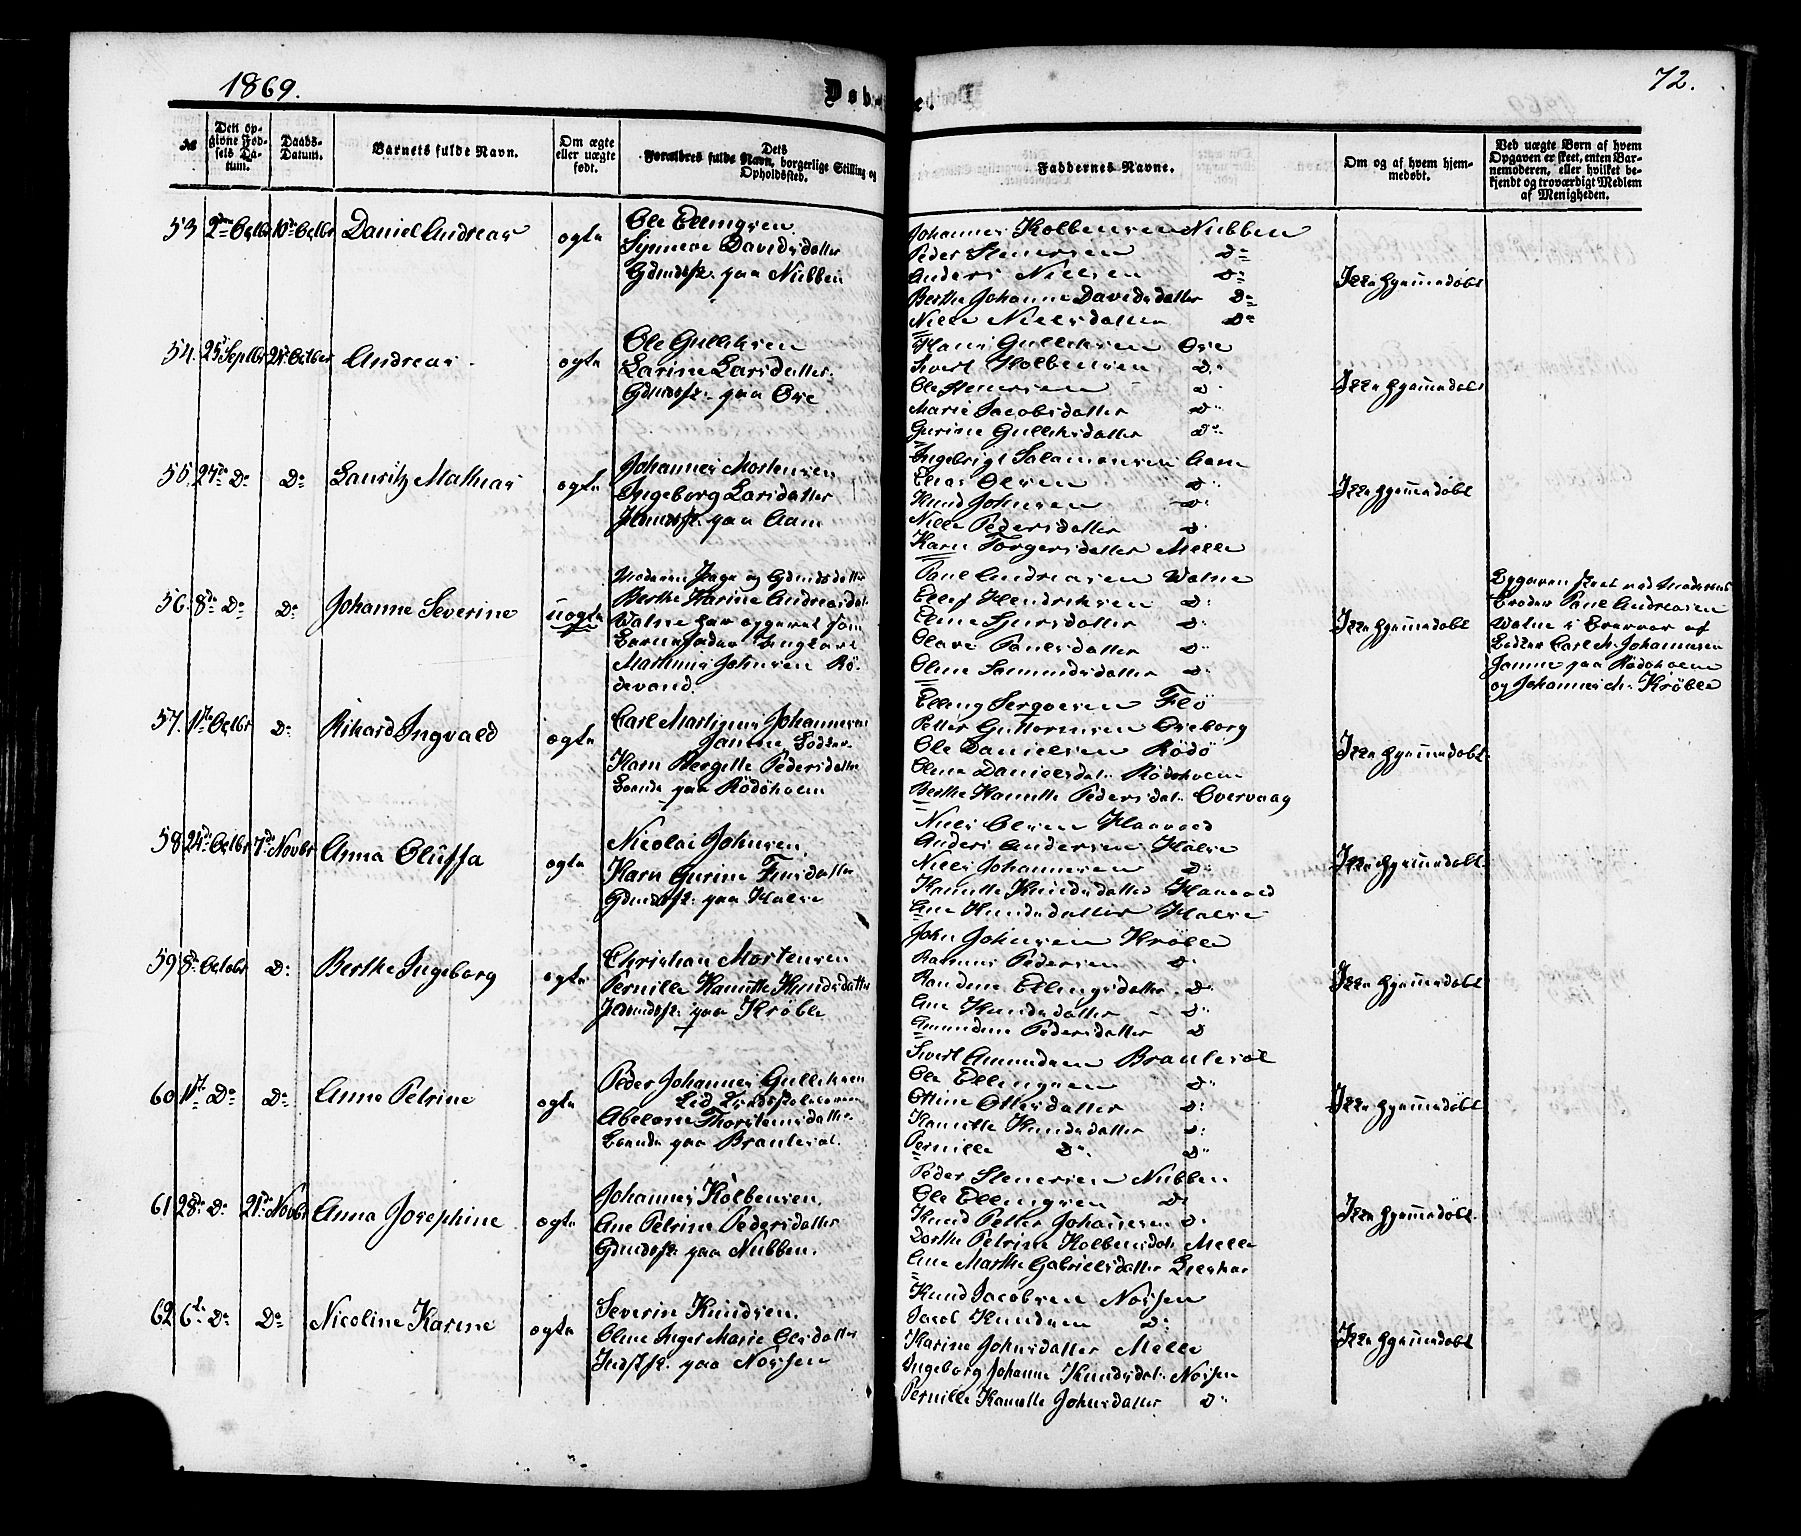 1869.
72.
Døb
e.
№
Dett op-
givne Fød-
sels Da-
tum.
Daabs-
Datum.
Barnets fulde Navn.
Om ægte
eller uægte
født.
Dets
Forældres fulde Navn, borgerlige Stilling og
Opholdssted.
Faddernes Navne.
Om og af hvem hjem-
medøbt.
Ved uægte Børn af hvem
Opgaven er skeet, enten Bar-
nemoderen, eller hvilket be-
kjendt og troværdigt Medlem
af Menigheden.
53 2den Octbr 10de Octbr Daniel Andreas ægte
Ole Ellingsen
Synneve Davidsdatter
Gdmdsf. paa Nubben
Johannes Kolbensen Nubben
Peder Stenersen Do
Anders Nielsen Do
Berthe Johanne Davidsdatter Do
Nille Nielsdatter Do
Ikke hjemmedøbt
54. 25 Septbr 24 Octbr Andreas ægte
Ole Gulliksen
Larine Larsdatter
Gdmdsf. paa Øre
Hans Gulliksen Øre
Sivert Kolbensen Do
Ole Stenersen Do
Marie Jacobsdatter Do
Gurine Gulliksdatter Do
Ikke hjemmedøbt
55. 27de Do Do Lauritz Mathias ægte
Johannes Mortensen
Ingeborg Larsdatter
Hdmdsf. paa Aam
Ingebrigt Salamonsen Aam
Elias Olsen Do
Knud Johnsen Do
Nille Pedersdatter Do
Karn Torgersdatter Melle
Ikke hjemmedøbt
56. 8de Do Do Johanne Severine uægte
Moderen Pige og Gdmdsdatter
Berthe Karine Andreasdat.
Watne har opgivet som
Barnefader Ungkarl
Mathias Johnsen Rö-
devand.
Paul Andreasen Watne
Ellef Hendriksen Do
Eline Sjursdatter Do
Olave Paulsdatter Do
Oline Samundsdatter Do
Ikke hjemmedøbt
Opgaven skeet ved Moderens
Broder Paul Andreasen
Watne i Nærvær af
Lodser Carl M. Johannesen
Janne paa Rödsholm
og Johannes M. Kröble
57. 1ste Octbr Do Rikard Ingvald ægte
Carl Martinus Johannesen
Janne Lodser
Karn Bergitte Pedersdatter
Boende paa Rödsholm
Elling Sergvesen Flö
Petter Guttormsen Overborg
Ole Danielsen Rödö
Oline Danielsdat. Rödsholm
Berthe Hanette Pedersdat. Overvaag
Ikke hjemmedøbt
58 24de Octbr 7de Novbr Anna Oluffa ægte
Nicolai Johnsen.
Karn Gurine Finsdatter
Gdmdsf. paa Halse
Niels Olsen Haavold
Anders Andersen Halse
Niels Johannesen Do
Hanette Knudsdatter Haavold
Ane Knudsdatter Halse
Ikke hjemmedøbt
59 8de Octobr Do Berthe Ingeborg ægte
Christian Mortensen
Pernille Hanette Knudsdatter
Hdmdsf. paa Kröble
John Johnsen Kröble
Rasmus Pedersen Do
Randine Ellingsdatter Do
Ane Knudsdatter Do
Amundine Pedersdatter Do
Ikke hjemmedøbt
60 17 Do Do Anne Petrine ægte
Peder Johannes Gulliksen
Lid
Abelone Thorstensdatter
Boende paa Brauteset.
Sivert Amundsen Brauteset
Ole Ellingsen Do
Ottine Ottersdatter Do
Hanette Knudsdatter Do
Pernille Do Do
Ikke hjemmedøbt
61 28de Do 21de Novbr Anna Josephine ægte
Johannes Kolbensen.
Ane Petrine Pedersdatter
Gdmdsf. paa Nubben.
Peder Stenersen Nubben
Ole Ellingsen Do
Knud Petter Johansen Do
Dorthe Petrine Kolbensdat. Melle
Ane Marthe Gabrielsdatter
Ikke hjemmedøbt
62 6te Do Do Nicoline Karine ægte
Severin Knudsen.
Oline Inger Marie Olsdatter
Indstf. paa Norsen
Knud Jacobsen Norsen
Jacob Knudsen Do
Karine Johnsdatter Melle
Ingeborg Johanne Knudsdat. Norsen
Pernille Hanette Johnsdatter Do
Ikke hjemmedøbt